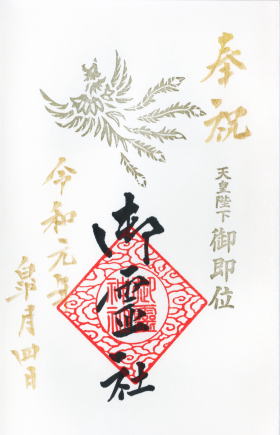 奉祝
天皇陛下御即位
御霊社
令和元年
皐月四日